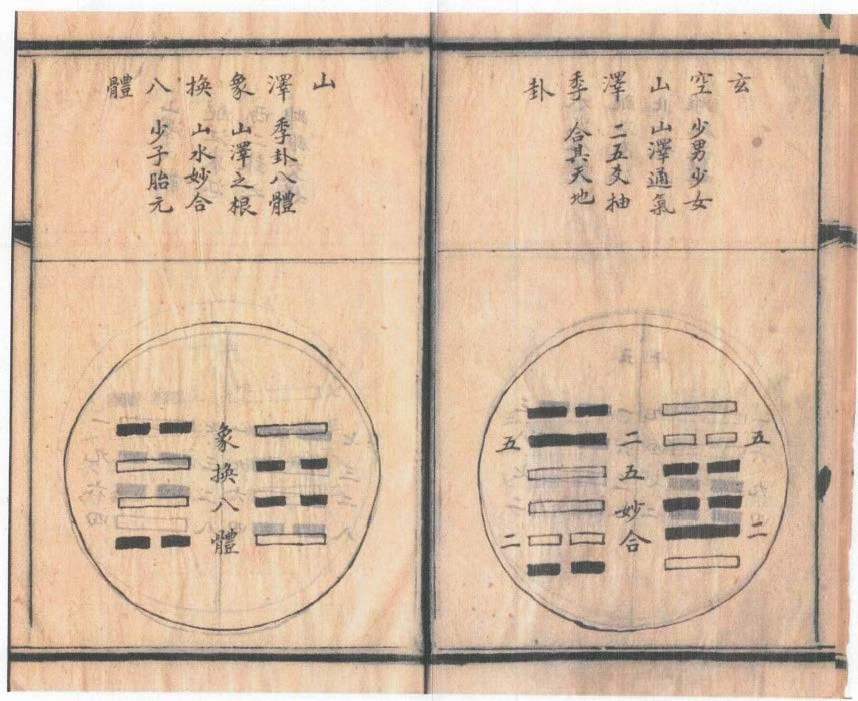 玄空山澤季卦
少男少女
山澤通氣
二五爻抽
合其天地
五
二
二五妙合
五
二
山澤象換八體
季卦八體
山澤之根
山水妙合
少子胎元
象換八體